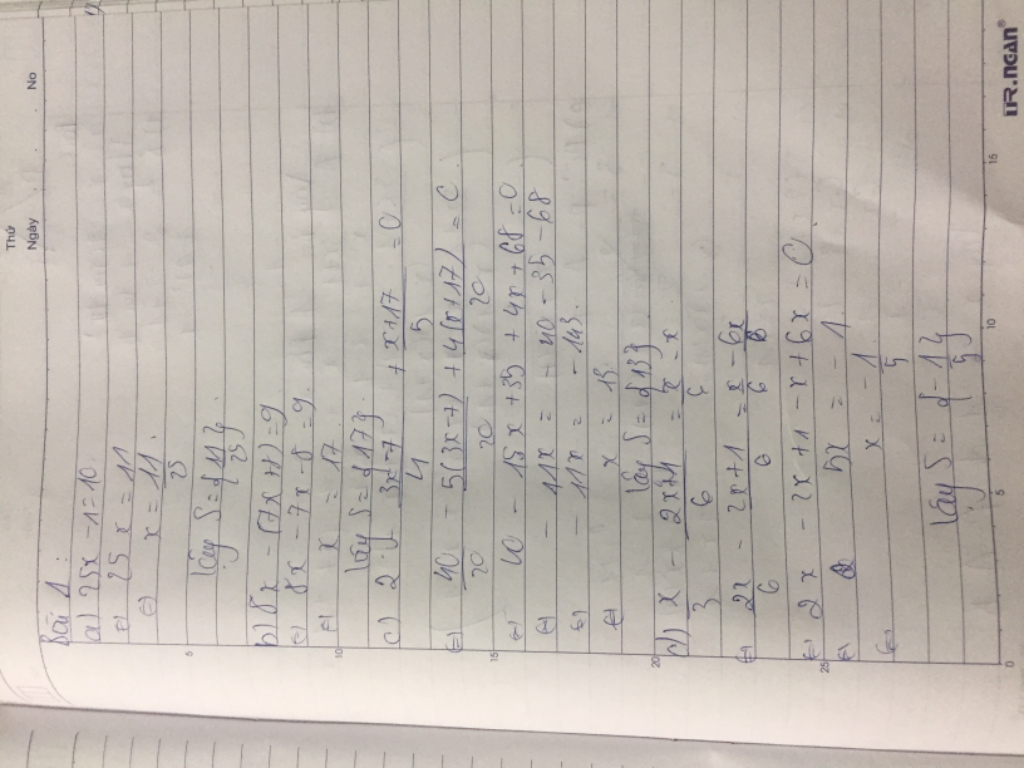 Thứ
Ngày No
Bài 1:
a) 25x - 1 = 10
(=) 25x = 11
(=) x = 11/25
Vậy S = {11/25}
b) 8x - (7x + 8) = 9
(=) 8x - 7x - 8 = 9
(=) x = 17
Vậy S = {17}
c) 2 - (3x - 7)/4 + (x + 17)/5 = 0
(=) 40/20 - 5(3x - 7)/20 + 4(x + 17)/20 = 0
(=) 40 - 15x + 35 + 4x + 68 = 0
(=) - 11x = - 40 - 35 - 68
(=) - 11x = - 143
(=) x = 13
Vậy S = {13}
d) x/3 - (2x + 1)/6 = x/6 - x
(=) 2x/6 - (2x + 1)/6 = x/6 - 6x/6
(=) 2x - 2x + 1 - x + 6x = 0
(=) 5x = - 1
(=) x = - 1/5
Vậy S = {- 1/5}
TR.NGAN®
0 5 10 15
5
10
15
20
25